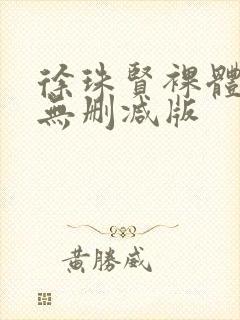 徐珠賢裸體
無刪減版
黃勝威